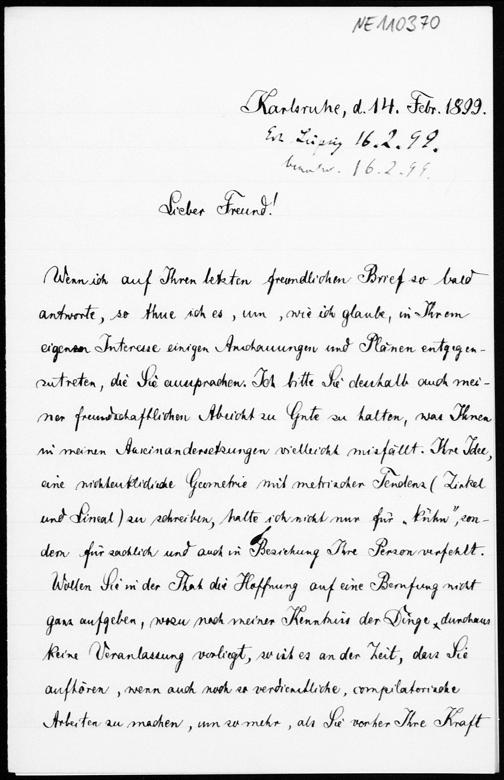 NE110370
Karlsruhe, d. 14. Febr. 1899.
Erh. Leipzig 16.2.99.
beantw. 16.2.99.
Lieber Freund!
Wenn ich auf Ihren letzten freundlichen Brief so bald
antworte, so thue ich es, um, wie ich glaube, in Ihrem
eigenen Interesse einigen Anschauungen und Plänen entgegen-
zutreten, die Sie aussprachen. Ich bitte Sie deshalb auch mei-
ner freundschaftlichen Absicht zu Gute zu halten, was Ihnen
in meinen Auseinandersetzungen vielleicht misfällt. Ihre Idee,
eine nichteuklidische Geometrie mit metrischer Tendenz (Zirkel
und Lineal) zu schreiben, halte ich nicht nur für „kühn", son-
dern für sachlich und auch in Beziehung Ihre Person verfehlt.
Wollen Sie in der That die Hoffnung auf eine Berufung nicht
ganz aufgeben, wozu nach meiner Kenntniss der Dinge durchaus
keine Veranlassung vorliegt, so ist es an der Zeit, dass Sie
aufhören, wenn auch noch so verdienstliche, compilatorische
Arbeiten zu machen, um so mehr, als Sie vorher Ihre Kraft